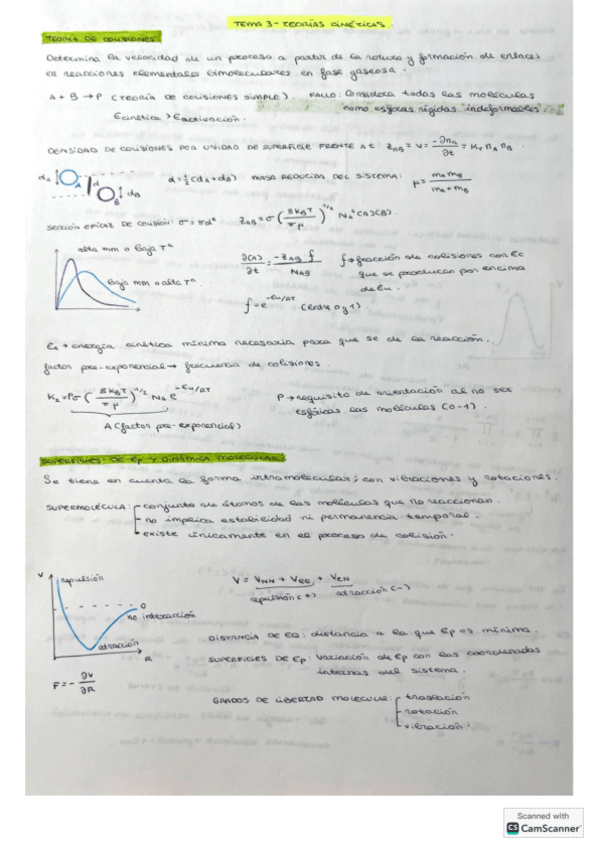 TEMA 3 - TEORÍAS CINÉTICAS.
TEORÍA DE COLISIONES.
Determina la velocidad de un proceso a partir de la rotura y formación de enlaces
en reacciones elementales bimoleculares en fase gaseosa.
A + B → P (TEORÍA DE COLISIONES SIMPLE). FALLO: Considera todas las moléculas
como esferas rígidas "indeformables".
Ecinética > Eactivación.
DENSIDAD DE COLISIONES POR UNIDAD DE SUPERFICIE FRENTE A t: Z_AB = V = -∂n_A/∂t = K_r n_A n_B
d_A A d B d_B d = ½(d_A + d_B) MASA REDUCIDA DEL SISTEMA: μ = m_A m_B / (m_A + m_B)
SECCIÓN EFICAZ DE COLISIÓN: σ = πd² Z_AB = σ (8K_BT/πμ)^1/2 N_A² (A)(B)
alta mm o baja Tª
baja mm o alta Tª
∂(A)/∂t = -Z_AB f / N_AB f → fracción de colisiones con Ec
que se producen por encima
de Ea.
f = e^-Ea/RT (entre 0 y 1)
Ea → energía cinética mínima necesaria para que se de la reacción.
factor pre-exponencial → frecuencia de colisiones.
K_2 = Pσ (8K_BT/πμ)^1/2 N_A e^-Ea/RT P → requisito de orientación al no ser
esféricas las moléculas (0-1).
A (factor pre-exponencial)
SUPERFICIES DE Ep Y DINÁMICA MOLECULAR
Se tiene en cuenta la forma intramolecular; con vibraciones y rotaciones.
SUPERMOLÉCULA: conjunto de átomos de las moléculas que no reaccionan.
no implica estabilidad ni permanencia temporal.
existe únicamente en el proceso de colisión.
V repulsión
0
no interacción
atracción
R
V = V_NN + V_ee + V_eN
repulsión (+) atracción (-)
DISTANCIA DE EQ: distancia a la que Ep es mínima.
SUPERFICIES DE Ep: Variación de Ep con las coordenadas
internas del sistema.
F = - ∂V/∂R
GRADOS DE LIBERTAD MOLECULAR: traslación
rotación
vibración.
Scanned with
CS CamScanner